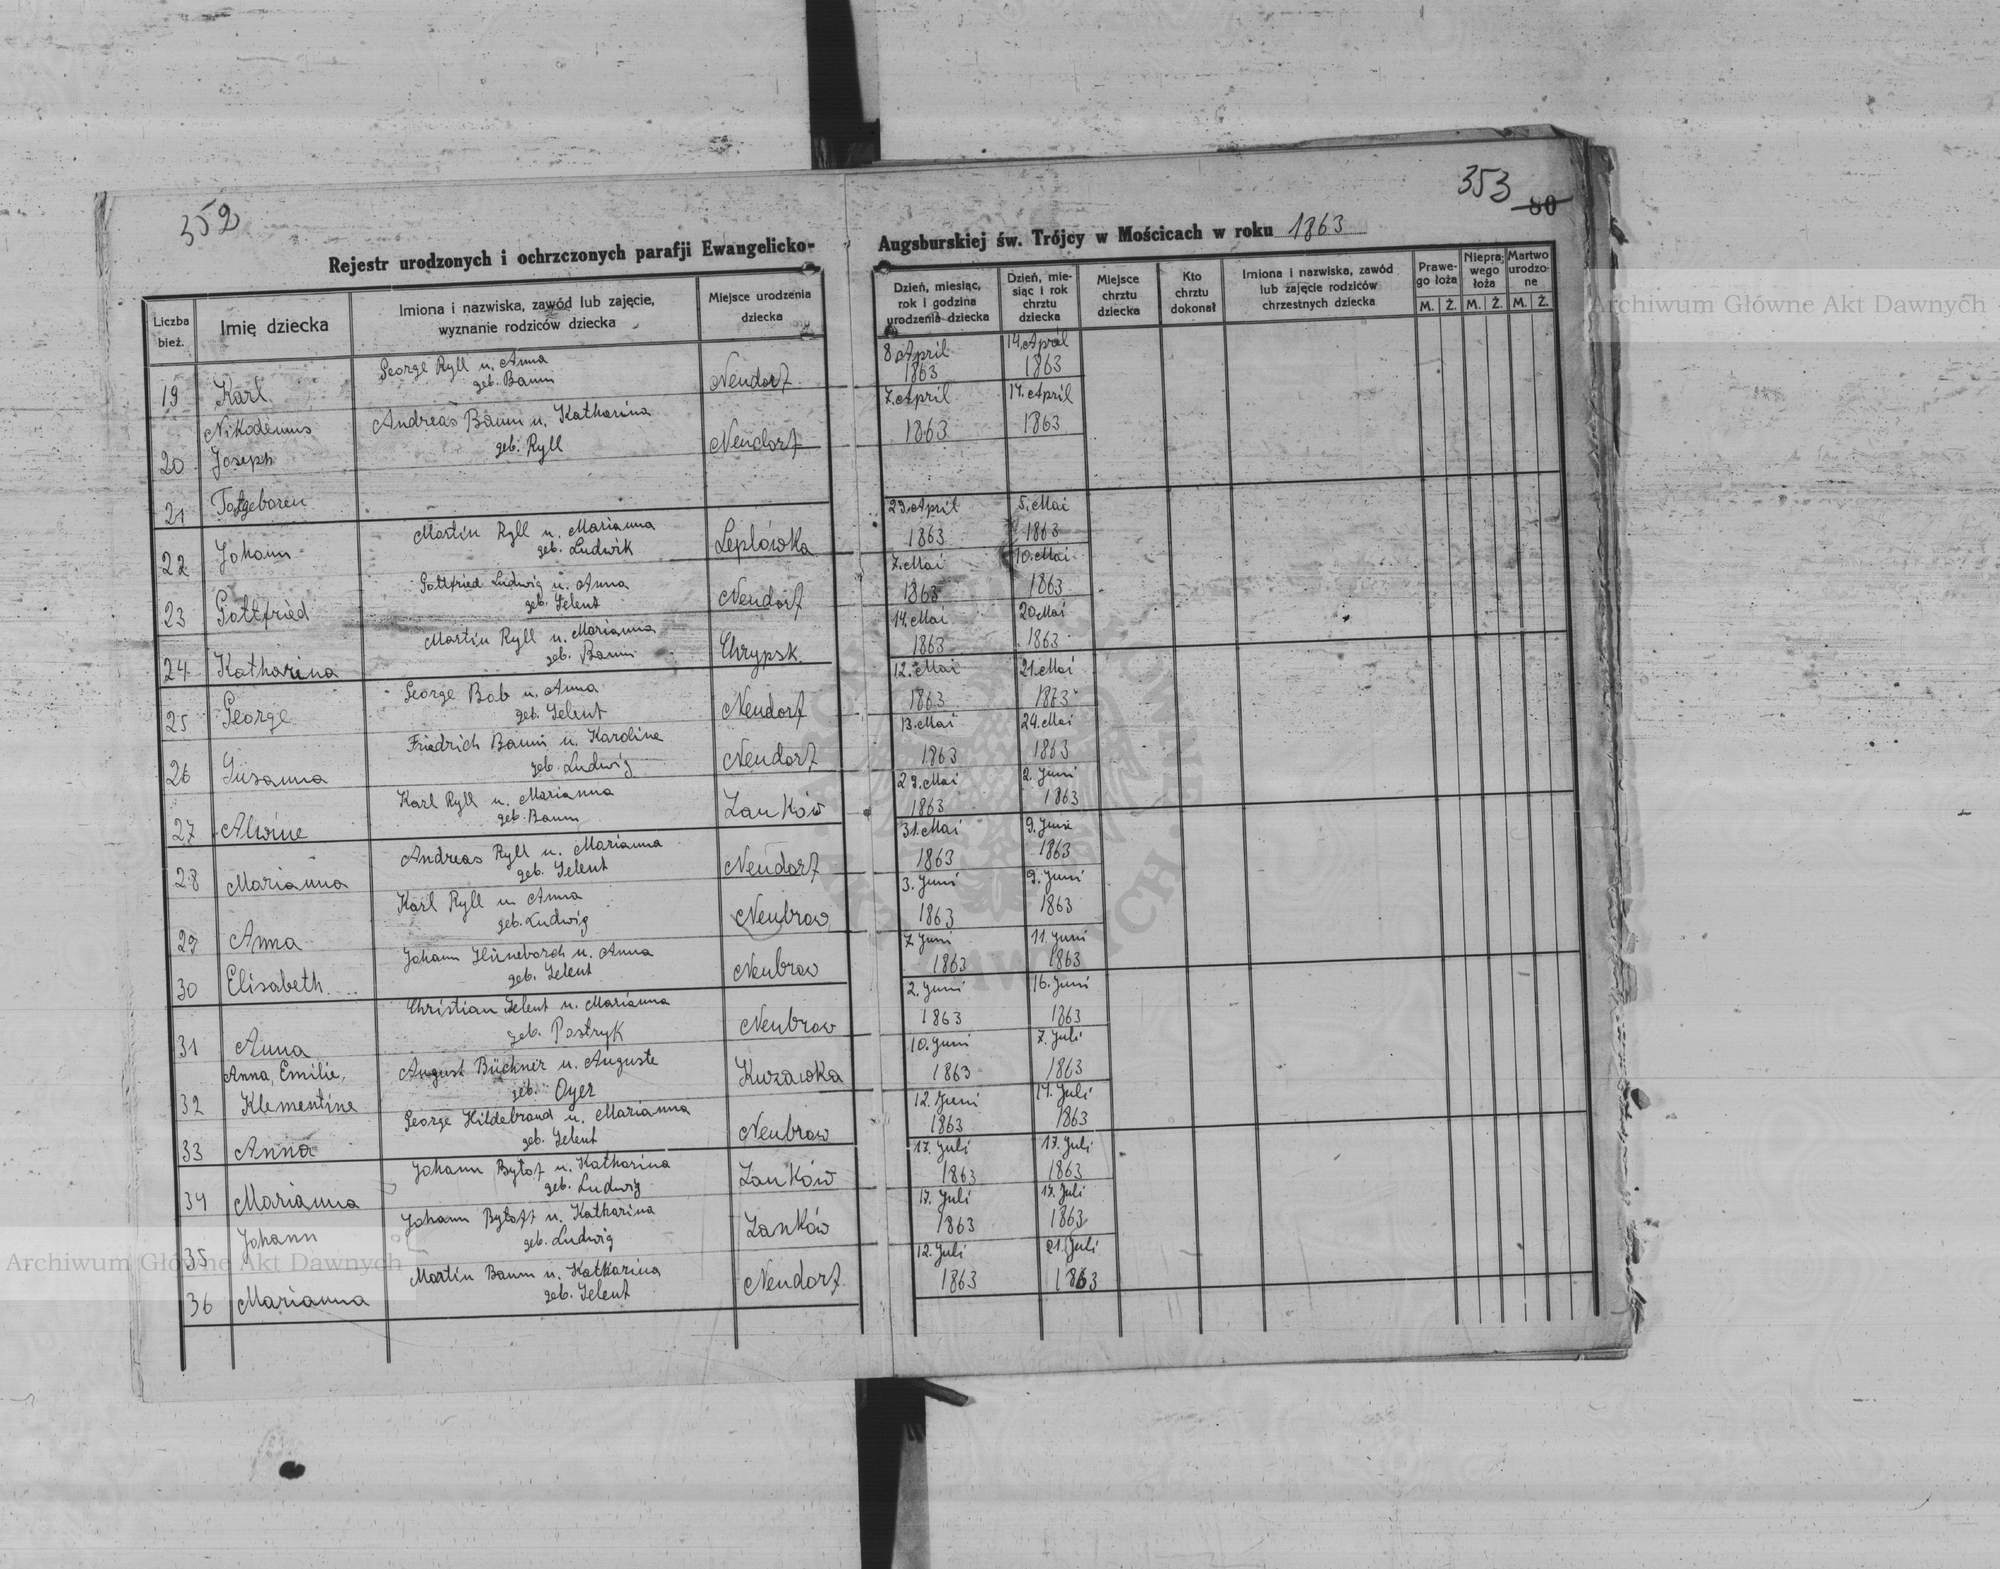 352
353 80
Rejestr urodzonych i ochrzczonych parafji Ewangelicko-
Augsburskiej św. Trójcy w Mościcach w roku 1863
Liczba bież.
Imię dziecka
Imiona i nazwiska, zawód lub zajęcie, wyznanie rodziców dziecka
Miejsce urodzenia dziecka
Dzień, miesiąc, rok i godzina urodzenia dziecka
Dzień, miesiąc i rok chrztu dziecka
Miejsce chrztu dziecka
Kto chrztu dokonał
Imiona i nazwiska, zawód lub zajęcie rodziców chrzestnych dziecka
Prawego łoża
Nieprawego łoża
Martwo urodzone
M. Ż. M. Ż. M. Ż.
19 Karl George Ryll u. Anna geb. Baum Neudorf 8. April 1863 14. April 1863
20 Nikodemus Joseph Andreas Baum u. Katharina geb. Ryll Neudorf 7. April 1863 17. April 1863
21 Totgeboren
22 Johann Martin Ryll u. Marianna geb. Ludwik Leplówka 23. April 1863 5. Mai 1863
23 Gottfried Gottfried Ludwig u. Anna geb. Zelent Neudorf 7. Mai 1863 10. Mai 1863
24 Katharina Martin Ryll u. Marianna geb. Baum Chrypsk 14. Mai 1863 20 Mai 1863
25 George George Bab u. Anna geb. Zelent Neudorf 12. Mai 1863 21. Mai 1863
26 Susanna Friedrich Baum u. Karoline geb. Ludwig Neudorf 13. Mai 1863 24. Mai 1863
27 Alwine Karl Ryll u. Marianna geb. Baum Zanków 29. Mai 1863 2. Juni 1863
28 Marianna Andreas Ryll u. Marianna geb. Zelent Neudorf 31. Mai 1863 9. Juni 1863
29 Anna Karl Ryll u. Anna geb. Ludwig Neubrow 3. Juni 1863 9. Juni 1863
30 Elisabeth Johann Hüneborch u. Anna geb. Zelent Neubrow 7 Juni 1863 11. Juni 1863
31 Anna Christian Zelent u. Marianna geb. Pastryk Neubrow 2. Juni 1863 16. Juni 1863
32 Anna, Emilie, Klementine August Büchner u. Auguste geb. Oyer Kurawka 10. Juni 1863 7. Juli 1863
33 Anna George Hildebrand u. Marianna geb. Zelent Neubrow 12. Juni 1863 14. Juli 1863
34 Marianna Johann Bytof u. Katharina geb. Ludwig Zanków 17. Juli 1863 17. Juli 1863
35 Johann Johann Bytoff u. Katharina geb. Ludwig Zanków 17. Juli 1863 17. Juli 1863
36 Marianna Martin Baum u. Katharina geb. Zelent Neudorf 12. Juli 1863 21. Juli 1863
Archiwum Główne Akt Dawnych
Archiwum Główne Akt Dawnych